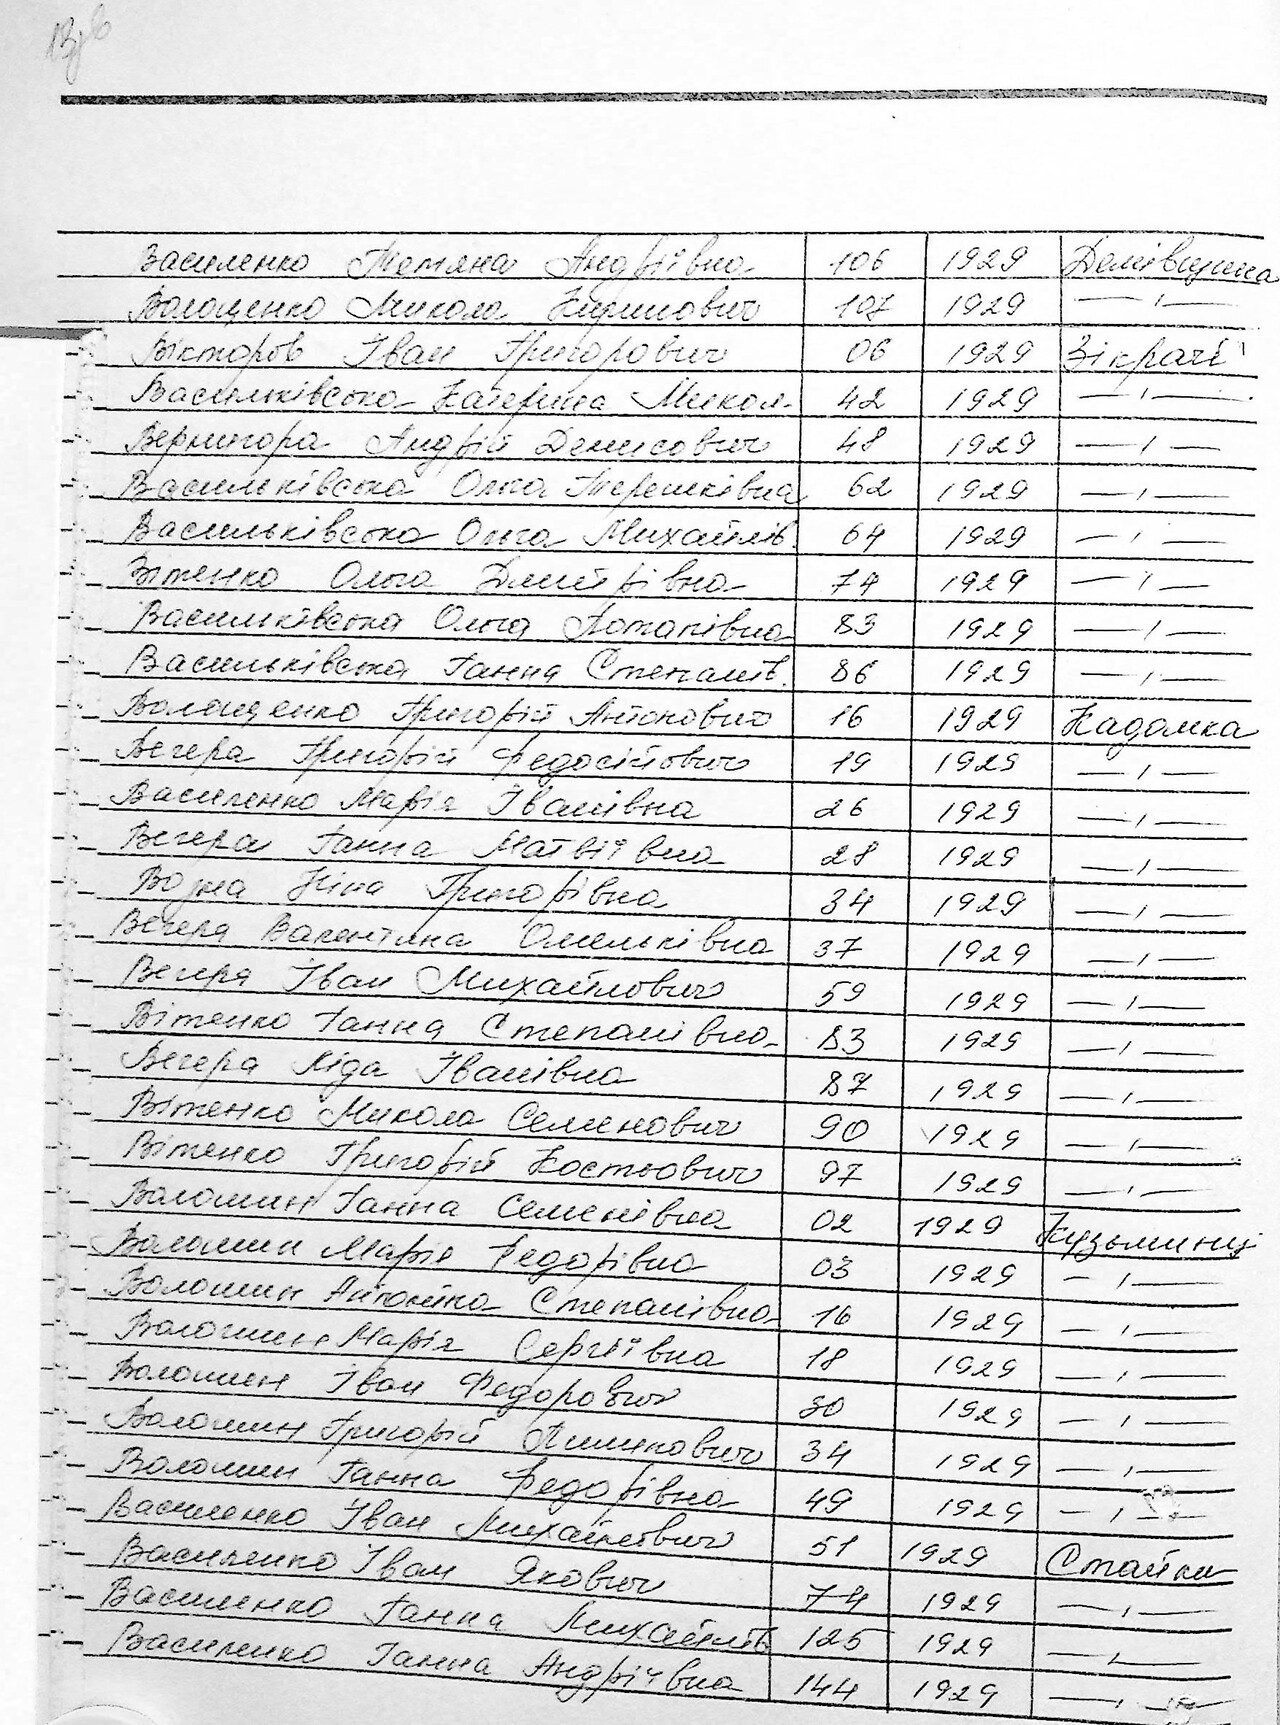 Василенко Тетяна Андріївна 106 1929 Демівщина
Волощенко Микола Кирилович 107 1929 —〃—
Вікторов Іван Григорович 06 1929 Зікрачі
Васильківська Катерина Микол. 42 1929 —〃—
Вернигора Андрій Денисович 48 1929 —〃—
Васильківська Ольга Терешківна 62 1929 —〃—
Васильківська Ольга Михайлів. 64 1929 —〃—
Вітенко Ольга Дмитрівна 74 1929 —〃—
Васильківська Ольга Потапівна 83 1929 —〃—
Васильківська Ганна Степанів. 86 1929 —〃—
Волощенко Григорій Антонович 16 1929 Кадомка
Вегера Григорій Федосійович 19 1929 —〃—
Василенко Марія Іванівна 26 1929 —〃—
Вегера Ганна Матвіївна 28 1929 —〃—
Ніна Григорівна 34 1929 —〃—
Вегеря Валентина Омельківна 37 1929 —〃—
Вегеря Іван Михайлович 59 1929 —〃—
Вітенко Ганна Степанівна 83 1929 —〃—
Вегера Ліда Іванівна 87 1929 —〃—
Вітенко Микола Семенович 90 1929 —〃—
Вітенко Григорій Костьович 97 1929 —〃—
Волошин Ганна Семенівна 02 1929 Кузьминці
Волошин Марія Федорівна 03 1929 —〃—
Волошин Антоніна Степанівна 16 1929 —〃—
Волошин Марія Сергіївна 18 1929 —〃—
Волошин Іван Федорович 30 1929 —〃—
Волошин Григорій 34 1929 —〃—
Волошин Ганна Федорівна 49 1929 —〃—
Василенко Іван Михайлович 51 1929 Стайки
Василенко Іван Якович 74 1929 —〃—
Василенко Ганна Михайлів 125 1929 —〃—
Василенко Ганна Андріївна 144 1929 —〃—